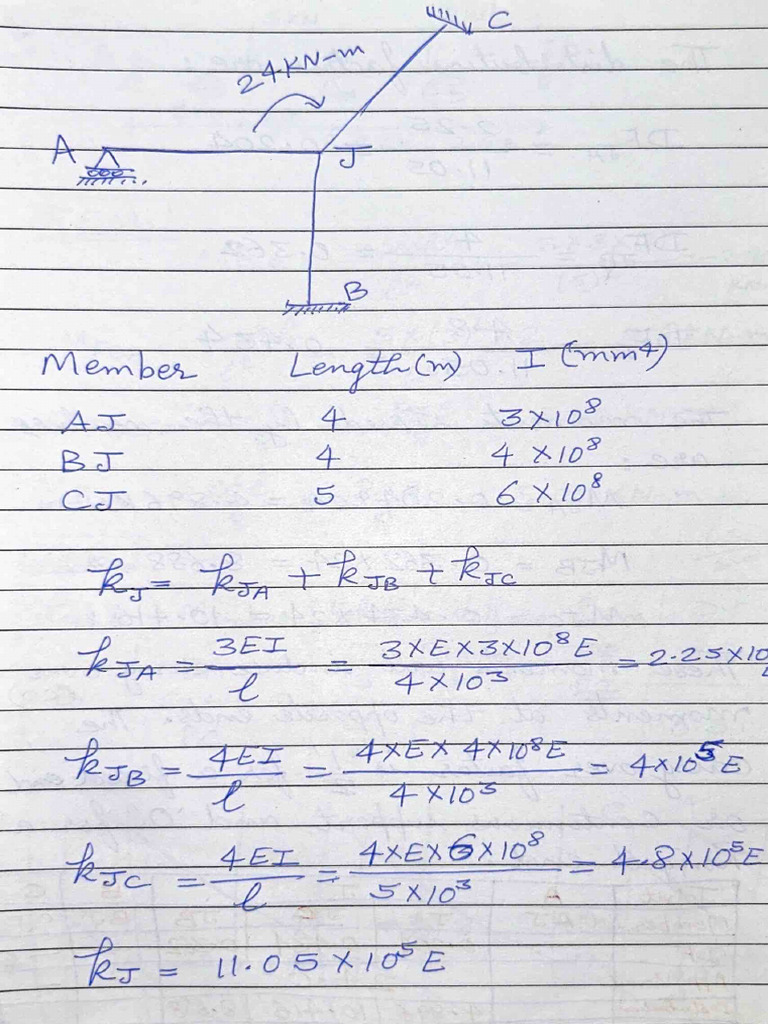 C
24KN-m
A J
B
Member Length (m) I (mm⁴)
AJ 4 3×10⁸
BJ 4 4×10⁸
CJ 5 6×10⁸
k_J = k_JA + k_JB + k_JC
k_JA = 3EI/l = 3×E×3×10⁸E/4×10³ = 2.25×10
k_JB = 4EI/l = 4×E×4×10⁸E/4×10³ = 4×10⁵E
k_JC = 4EI/l = 4×E×6×10⁸/5×10³ = 4.8×10⁵E
k_J = 11.05×10⁵E